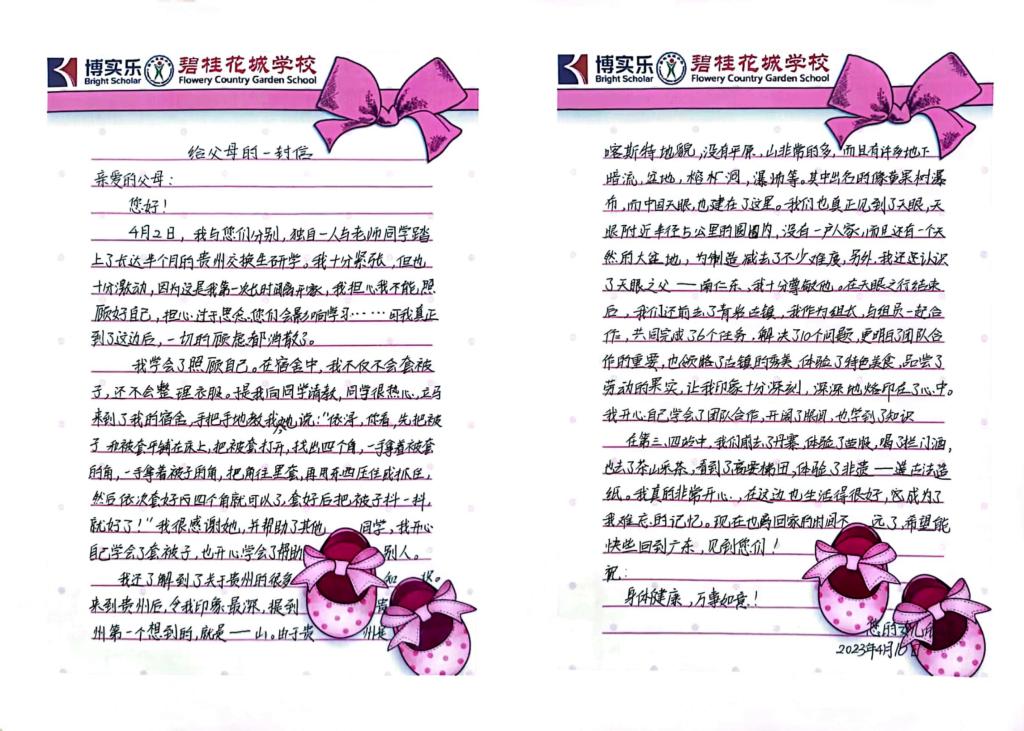 博实乐 碧桂花城学校
Bright Scholar Flowery Country Garden School
给父母的一封信
亲爱的父母:
您好!
4月2日,我与您们分别,独自一人与老师同学踏
上了长达半个月的贵州交换生研学。我十分紧张,但也
十分激动,因为这是我第一次长时间离开家,我担心我不能照
顾好自己,担心过于思念您们会影响学习……可我真正
到了这边后,一切的顾虑都消散了。
我学会了照顾自己。在宿舍中,我不仅不会套被
子,还不会整理衣服。于是我向同学请教,同学很热心,立马
来到了我的宿舍,手把手地教我,她说:“依浔,你看,先把被
子和被套平铺在床上,把被套打开,找出四个角,一手拿着被套
的角,一手拿着被子的角,把角往里套,再用东西压住或抓住,
然后依次套好四个角就可以了,套好后把被子抖一抖,
就好了!”我很感谢她,并帮助了其他同学,我开心
自己学会了套被子,也开心学会了帮助别人。
我还了解到了关于贵州的很多知识。
来到贵州后,令我印象最深,提到贵
州第一个想到的,就是——山。由于贵州是
博实乐 碧桂花城学校
Bright Scholar Flowery Country Garden School
喀斯特地貌,没有平原,山非常的多,而且有许多地下
暗流,盆地,溶洞,瀑布等。其中出名的像黄果树瀑
布,而中国天眼,也建在了这里。我们也真正见到了天眼,天
眼附近半径5公里的圆圈内,没有一户人家,而且还有一个天
然的大盆地,为制造减去了不少难度,另外,我还认识
了天眼之父——南仁东,我十分尊敬他。在天眼之行结束
后,我们还前去了青岩古镇,我作为组长,与组员一起合
作,共同完成了6个任务,解决了10个问题,更明白了团队合
作的重要,也领略了古镇的秀美,体验了特色美食,品尝了
劳动的果实,让我印象十分深刻,深深地烙印在了心中。
我开心自己学会了团队合作,开阔了眼间,也学到了知识
在第三、四站中,我们前去了丹寨,体验了蜡染,喝了拦门酒,
也去了茶山采茶,看到了高要梯田,体验了非遗——遵古法造
纸。我真的非常开心,在这边也生活得很好,它成为了
我难忘的记忆。现在也离回家的时间不远了,希望能
快些回到广东,见到您们!
祝:
身体健康,万事如意!
您的
2023年4月15日